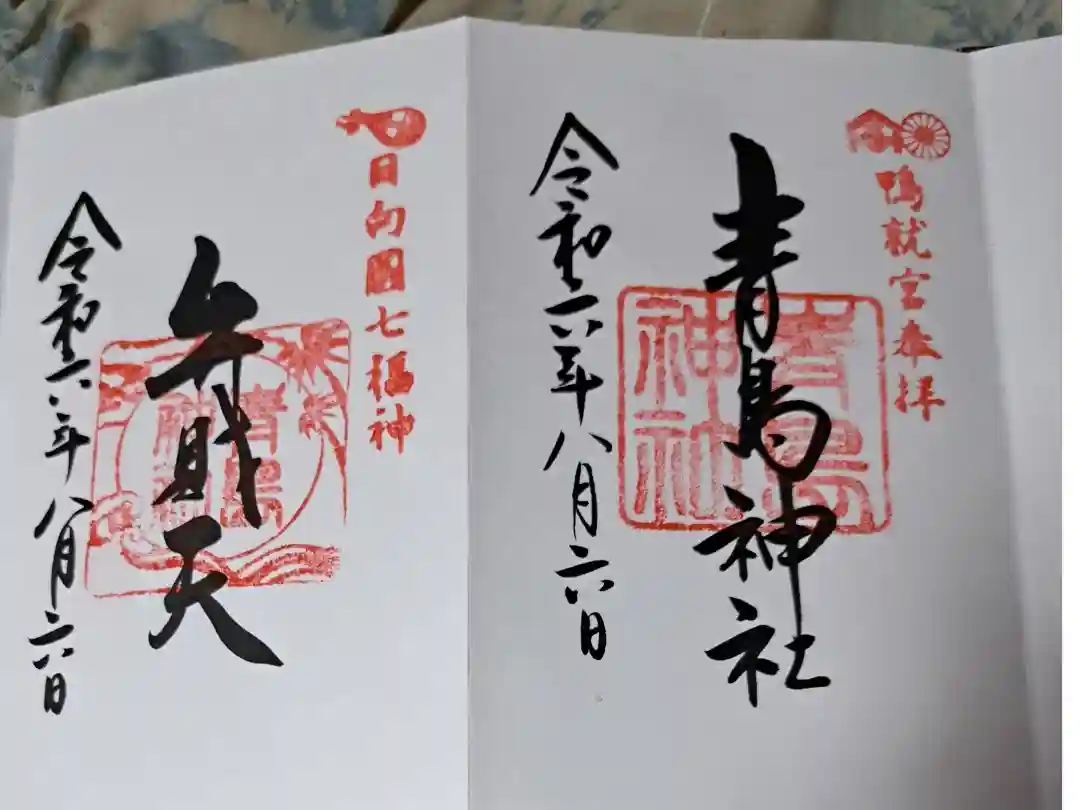 鴨就宮奉拝
青島神社
青島
神社
令和六年八月六日
日向國七福神
弁財天
青島
令和六年八月六日